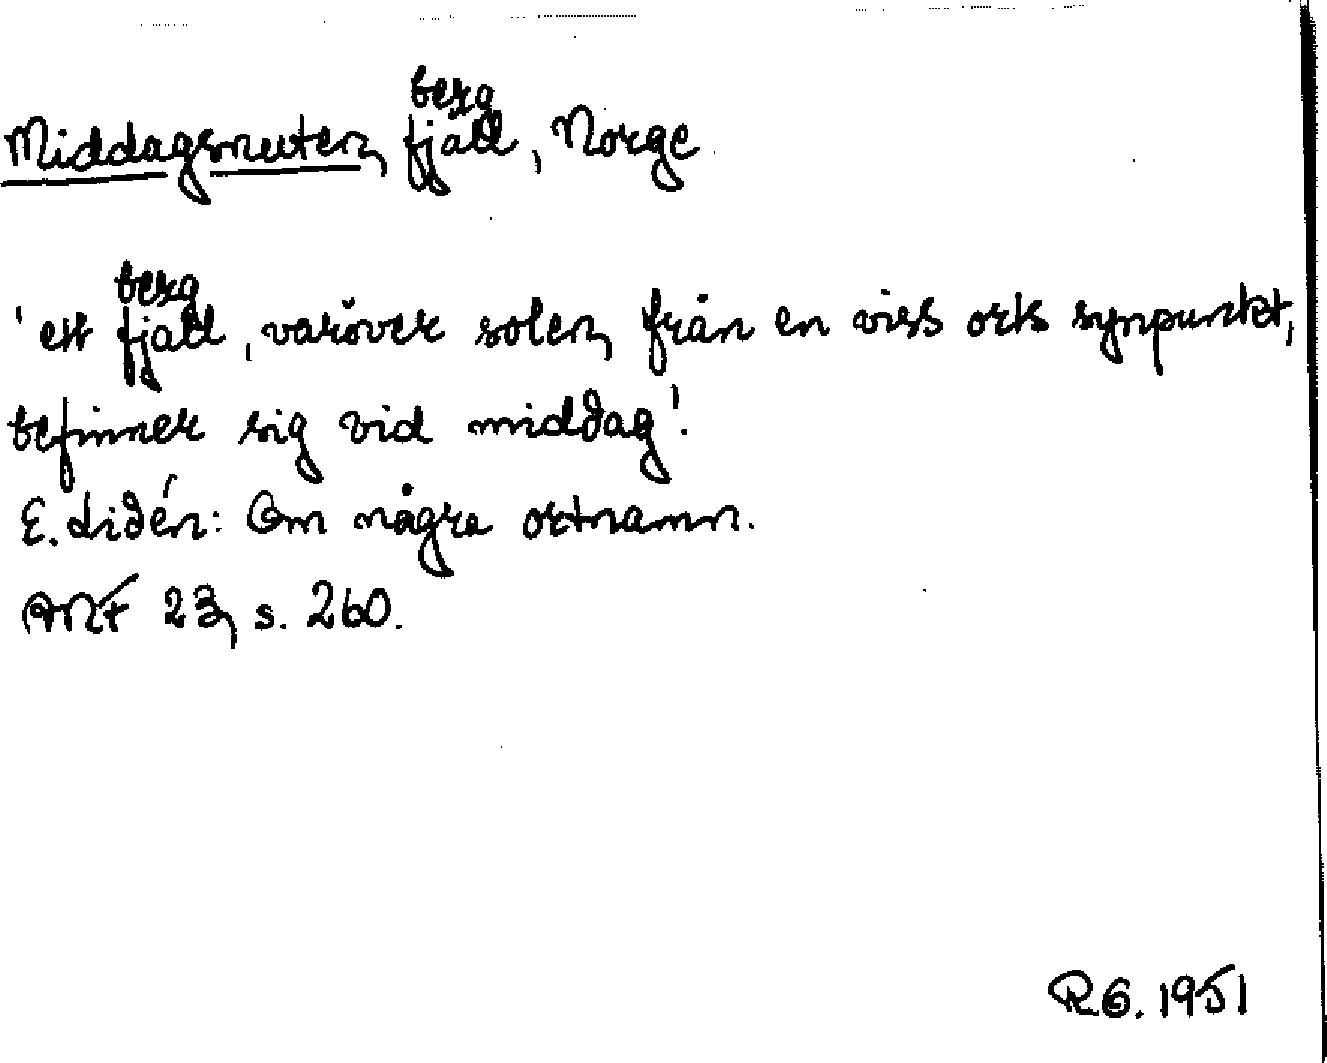 berg
Middagsnuten, fjäll, Norge
berg
'ett fjäll, varöver solen, från en viss orts synpunkt,
befinner sig vid middag'.
E. Lidén: Om några ortnamn.
ANF 23, s. 260.
R.G. 1951